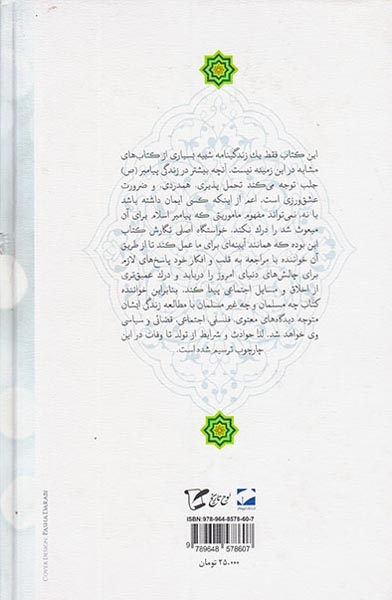 این کتاب فقط یک زندگینامه شبیه بسیاری از کتاب‌های
مشابه در این زمینه نیست. آنچه بیشتر در زندگی پیامبر (ص)
جلب توجه می‌کند تحمل پذیری، همدردی، و ضرورت
عشق‌ورزی است. اعم از اینکه کسی ایمان داشته باشد
یا نه، نمی‌تواند مفهوم ماموریتی که پیامبر اسلام برای آن
مبعوث شد را درک نکند. خواستگاه اصلی نگارش کتاب
این بوده که همانند آیینه‌ای برای ما عمل کند تا از طریق
آن خواننده با مراجعه به قلب و افکار خود پاسخ‌های لازم
برای چالش‌های دنیای امروز را دریابد و درک عمیق‌تری
از اخلاق و مسایل اجتماعی پیدا کند. بنابراین خواننده
کتاب چه مسلمان و چه غیر مسلمان با مطالعه زندگی ایشان
متوجه دیدگاه‌های معنوی، فلسفی، اجتماعی، قضائی و سیاسی
وی خواهد شد. لذا حوادث و شرایط از تولد تا وفات در این
چارچوب ترسیم شده است.
لوح تاریخ
ISBN: 978-964-8578-60-7
9 789648 578607
۲۵۰۰۰ تومان
COVER DESIGN: PASHA DARABI